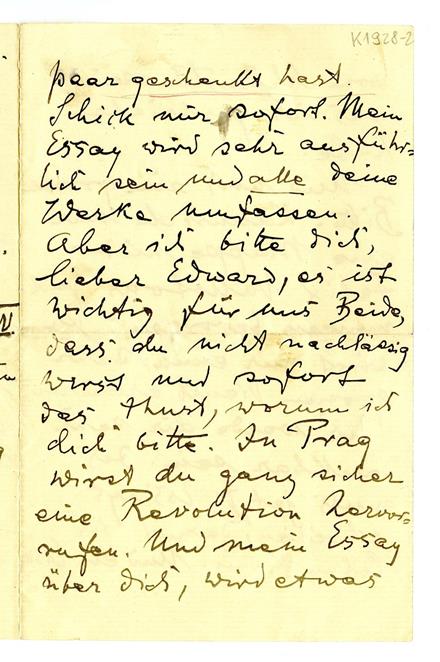 K1928-2
paar geschenkt hast.
Schick mir sofort. Mein
Essay wird sehr ausführ=
lich sein und alle deine
Werke umfassen.
Aber ich bitte dich,
lieber Edward, es ist
wichtig für uns Beide,
dass du nicht nachlässig
wirst und sofort
das thust, worum ich
dich bitte. In Prag
wirst du ganz sicher
eine Revolution hervor=
rufen. Und mein Essay
über dich, wird etwas